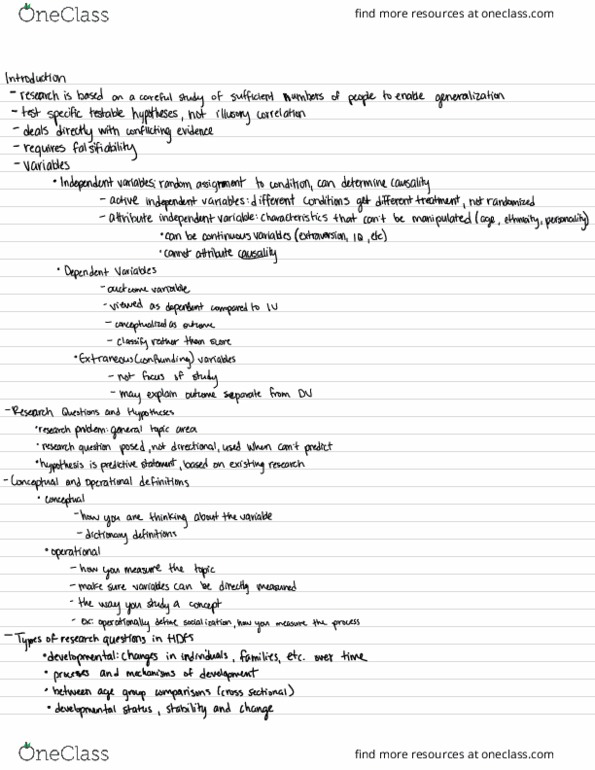 OneClass
find more resources at oneclass.com
Introduction
- research is based on a careful study of sufficient numbers of people to enable generalization
- test specific testable hypotheses, not illusory correlation
- deals directly with conflicting evidence
- requires falsifiability
- Variables
• Independent variables: random assignment to condition, can determine causality
- active independent variables: different conditions get different treatment, not randomized
- attribute independent variable: characteristics that can't be manipulated (age, ethnicity, personality)
• can be continuous variables (extraversion, IQ, etc)
• cannot attribute causality
• Dependent Variables
- outcome variable
- viewed as dependent compared to IV
- conceptualized as outcome
- classify rather than score
• Extraneous (confounding) variables
- not focus of study
- may explain outcome separate from DV
- Research Questions and Hypotheses
• research problem: general topic area
• research question posed, not directional, used when can't predict
• hypothesis is predictive statement, based on existing research
- Conceptual and operational definitions
• conceptual
- how you are thinking about the variable
- dictionary definitions
• operational
- how you measure the topic
- make sure variables can be directly measured
- the way you study a concept
- ex: operationally define socialization, how you measure the process
- Types of research questions in HDFS
• developmental: changes in individuals, families, etc. over time
• processes and mechanisms of development
• between age group comparisons (cross sectional)
• developmental status, stability and change
OneClass
find more resources at oneclass.com